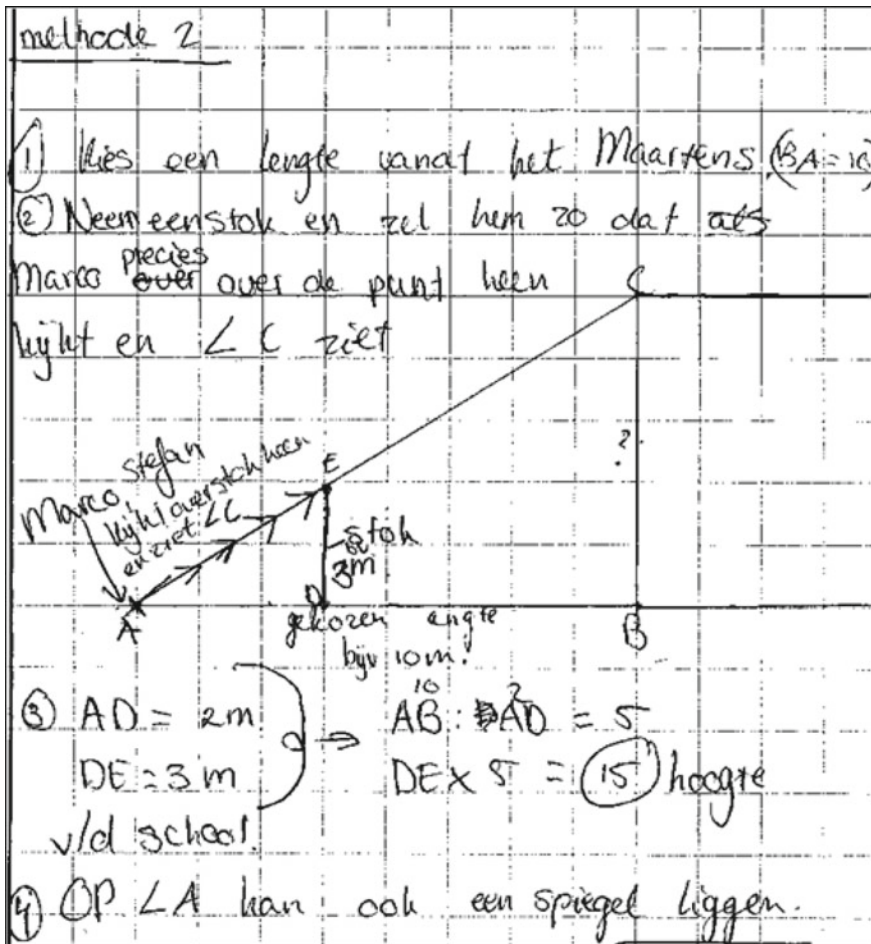 methode 2
① Kies een lengte vanaf het Maartens. (BA = 10)
② Neem een stok en zet hem zo dat als
Marco precies over over de punt heen
kijkt en ∠ C ziet
C
?
Marco, Stefan
kijkt over stok heen
en ziet ∠C
E
stok
3m
A
D
B
gekozen lengte
bijv 10m.
③ AD = 2m
DE = 3m
10 2
AB : AD = 5
DE x 5 = 15 hoogte
v/d school.
④ OP ∠A kan ook een spiegel liggen.